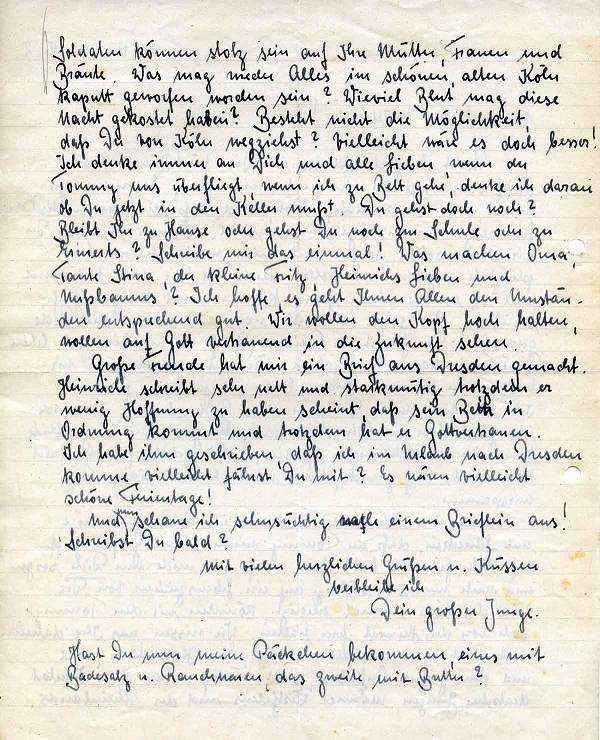 Soldaten können stolz sein auf Ihre Mütter, Frauen und
Bräute. Was mag wieder Alles im schönen, alten Köln
kaputt geworfen worden sein? Wieviel Blut mag diese
Nacht gekostet haben? Besteht nicht die Möglichkeit,
daß Du von Köln wegziehst? Vielleicht wäre es doch besser!
Ich denke immer an Dich und alle Lieben wenn der
Tommy uns überfliegt, wenn ich zu Bett gehe, denke ich daran
ob Du jetzt in den Keller mußt. Du gehst doch noch?
Bleibt Ihr zu Hause oder gehst Du noch zur Schule oder zu
Eimerts? Schreibe mir das einmal! Was machen Oma,
Tante Stina, der kleine Fritz, Heinrichs Lieben und
Nußbaums? Ich hoffe, es geht Ihnen Allen den Umstän-
den entsprechend gut. Wir wollen den Kopf hoch halten,
wollen auf Gott vertrauend in die Zukunft sehen.
Große Freude hat mir ein Brief aus Dresden gemacht.
Heinrich schreibt sehr nett und starkmütig trotzdem er
wenig Hoffnung zu haben scheint, daß sein Bein in
Ordnung kommt und trotzdem hat er Gottvertrauen.
Ich habe ihm geschrieben, daß ich im Urlaub nach Dresden
komme vielleicht fährst Du mit? Es wären vielleicht
schöne Ferientage!
Und nun schaue ich sehnsüchtig nach einem Brieflein aus!
Schreibst Du bald?
Mit vielen herzlichen Grüßen u. Küssen
verbleibe ich
Dein großer Junge.
Hast Du nun meine Päckchen bekommen, eines mit
Badesalz u. Rauchwaren, das zweite mit Butter?